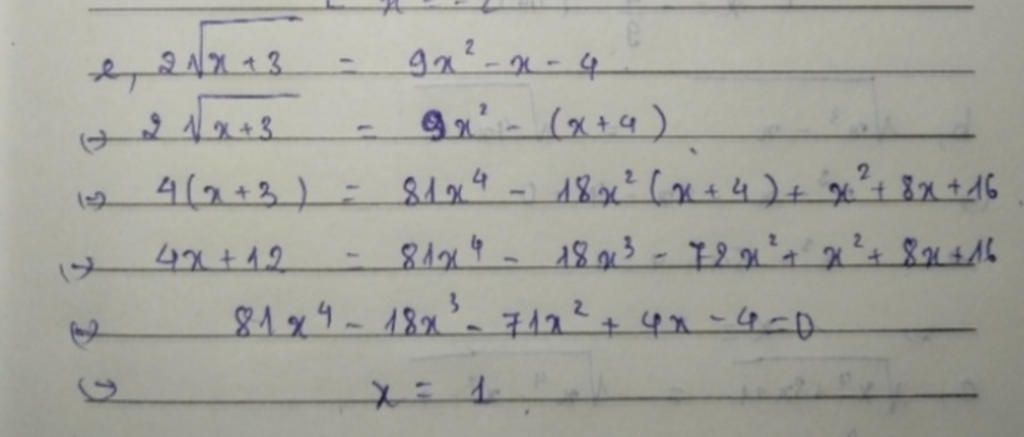 e, 2√(x+3) = 9x² - x - 4
⇔ 2√(x+3) = 9x² - (x+4)
⇔ 4(x+3) = 81x⁴ - 18x²(x+4) + x² + 8x + 16
⇔ 4x + 12 = 81x⁴ - 18x³ - 72x² + x² + 8x + 16
⇔ 81x⁴ - 18x³ - 71x² + 4x - 4 = 0
⇔ x = 1